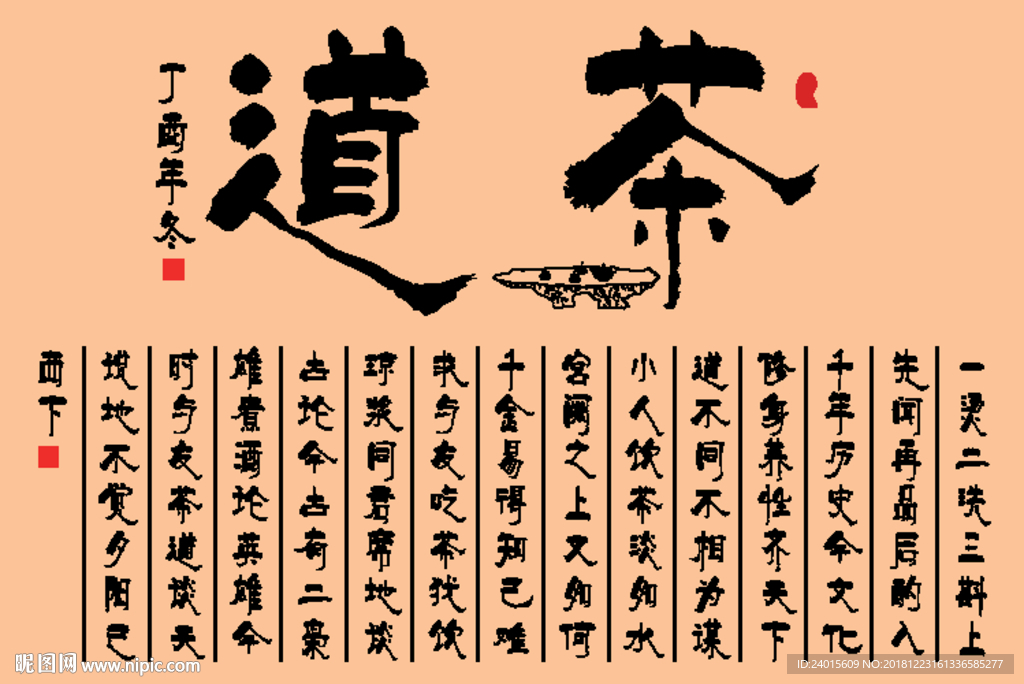 茶道
丁酉年冬
一烫二洗三斟上
先闻再品后酌入
千年历史今文化
修身养性齐天下
道不同不相为谋
小人饮茶淡如水
宫阙之上又如何
千金易得知己难
我与友吃茶犹饮
琼浆同君席地谈
古论今古有二枭
雄煮酒论英雄今
时与友茶道谈天
说地不赏夕阳已
西下
昵图网 www.nipic.com
ID:24015609 NO:20181223161336585277